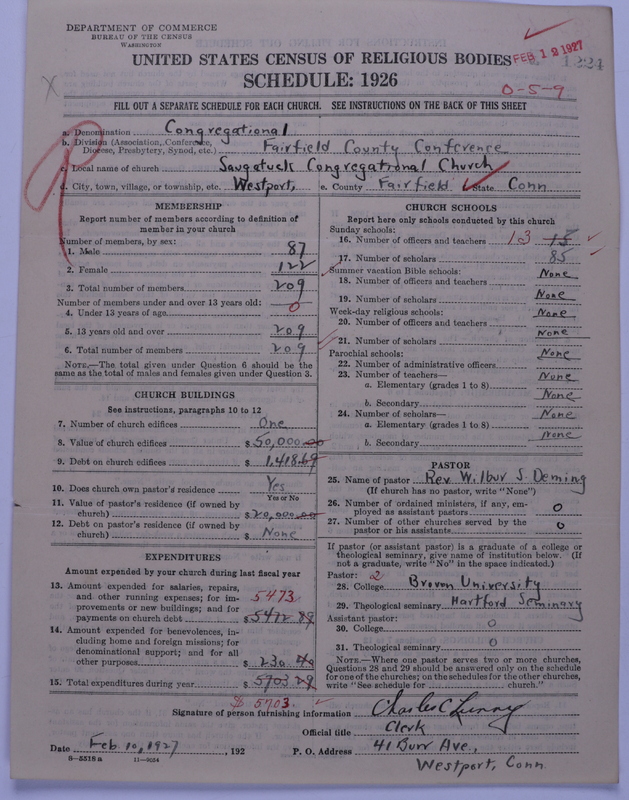 DEPARTMENT OF COMMERCE
BUREAU OF THE CENSUS
WASHINGTON
UNITED STATES CENSUS OF RELIGIOUS BODIES
FEB 12 1927
SCHEDULE: 1926
0-5-9
FILL OUT A SEPARATE SCHEDULE FOR EACH CHURCH. SEE INSTRUCTIONS ON THE BACK OF THIS SHEET
a. Denomination Congregational
b. Division (Association, Conference, Diocese, Presbytery, Synod, etc.) Fairfield County Conference
c. Local name of church Saugatuck Congregational Church
d. City, town, village, or township, etc. Westport, e. County Fairfield State Conn
MEMBERSHIP
Report number of members according to definition of
member in your church
Number of members, by sex:
1. Male 87
2. Female 122
3. Total number of members 209
Number of members under and over 13 years old:
4. Under 13 years of age 0
5. 13 years old and over 209
6. Total number of members 209
NOTE.—The total given under Question 6 should be the
same as the total of males and females given under Question 3.
CHURCH BUILDINGS
See instructions, paragraphs 10 to 12
7. Number of church edifices One
8. Value of church edifices $ 50,000.00
9. Debt on church edifices $ 1,418.69
10. Does church own pastor's residence Yes
Yes or No
11. Value of pastor's residence (if owned by
church) $ 20,000.00
12. Debt on pastor's residence (if owned by
church) $ None
EXPENDITURES
Amount expended by your church during last fiscal year
13. Amount expended for salaries, repairs,
and other running expenses; for im- 5473
provements or new buildings; and for
payments on church debt $ 5472 89
14. Amount expended for benevolences, in-
cluding home and foreign missions; for
denominational support; and for all
other purposes $ 230.40
15. Total expenditures during year $ 5703 29
$ 5703.
CHURCH SCHOOLS
Report here only schools conducted by this church
Sunday schools:
16. Number of officers and teachers 13 15
17. Number of scholars 85
Summer vacation Bible schools:
18. Number of officers and teachers None
19. Number of scholars None
Week-day religious schools:
20. Number of officers and teachers None
21. Number of scholars None
Parochial schools:
22. Number of administrative officers None
23. Number of teachers—
a. Elementary (grades 1 to 8) None
b. Secondary None
24. Number of scholars—
a. Elementary (grades 1 to 8) None
b. Secondary None
PASTOR
25. Name of pastor Rev. Wilbur S. Deming
(If church has no pastor, write "None")
26. Number of ordained ministers, if any, em-
ployed as assistant pastors 0
27. Number of other churches served by the
pastor or his assistants 0
If pastor (or assistant pastor) is a graduate of a college or
theological seminary, give name of institution below. (If
not a graduate, write "No" in the space indicated.)
Pastor: 2
28. College Brown University
29. Theological seminary Hartford Seminary
Assistant pastor:
30. College 0
31. Theological seminary 0
NOTE.—Where one pastor serves two or more churches,
Questions 28 and 29 should be answered only on the schedule
for one of the churches; on the schedules for the other churches,
write "See schedule for church."
Signature of person furnishing information Charles C.
Official title Clerk
Date Feb 10, 1927, 192 P. O. Address 41 Burr Ave.,
Westport, Conn.
8—5518a 11—9054